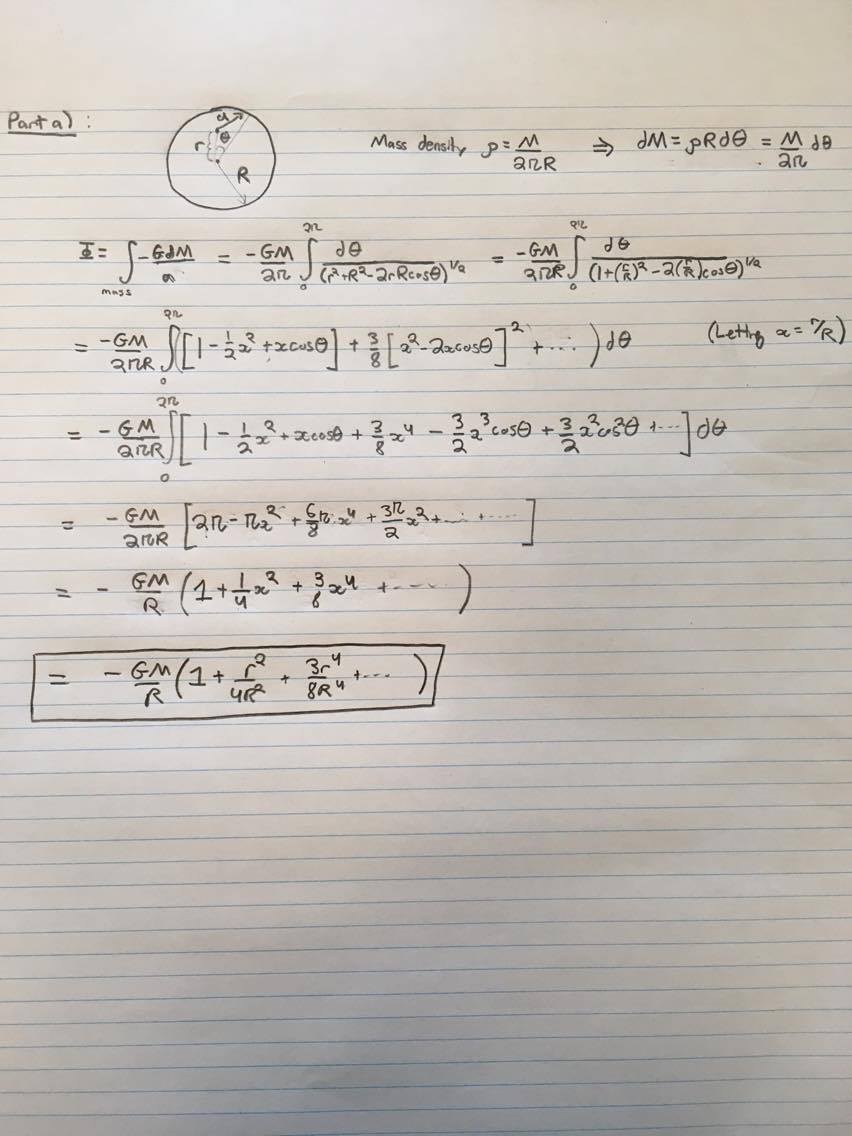 Part a) :
Mass density ρ = M/2πR ⇒ dM = ρRdθ = M/2π dθ
a
r
θ
R
Φ = ∫mass -GdM/a = -GM/2π ∫₀^2π dθ/(r²+R²-2rRcosθ)^1/2 = -GM/2πR ∫₀^2π dθ/(1+(r/R)²-2(r/R)cosθ)^1/2
= -GM/2πR ∫₀^2π ([1-½x²+xcosθ] + 3/8[x²-2xcosθ]² + ....) dθ (Letting x = r/R)
= -GM/2πR ∫₀^2π [1 - ½x² + xcosθ + 3/8x⁴ - 3/2x³cosθ + 3/2x²cos²θ + ...] dθ
= -GM/2πR [2π - πx² + 6/8πx⁴ + 3π/2x² + .... + .....]
= - GM/R (1 + ¼x² + 3/8x⁴ + .....)
= -GM/R (1 + r²/4R² + 3r⁴/8R⁴ + ....)